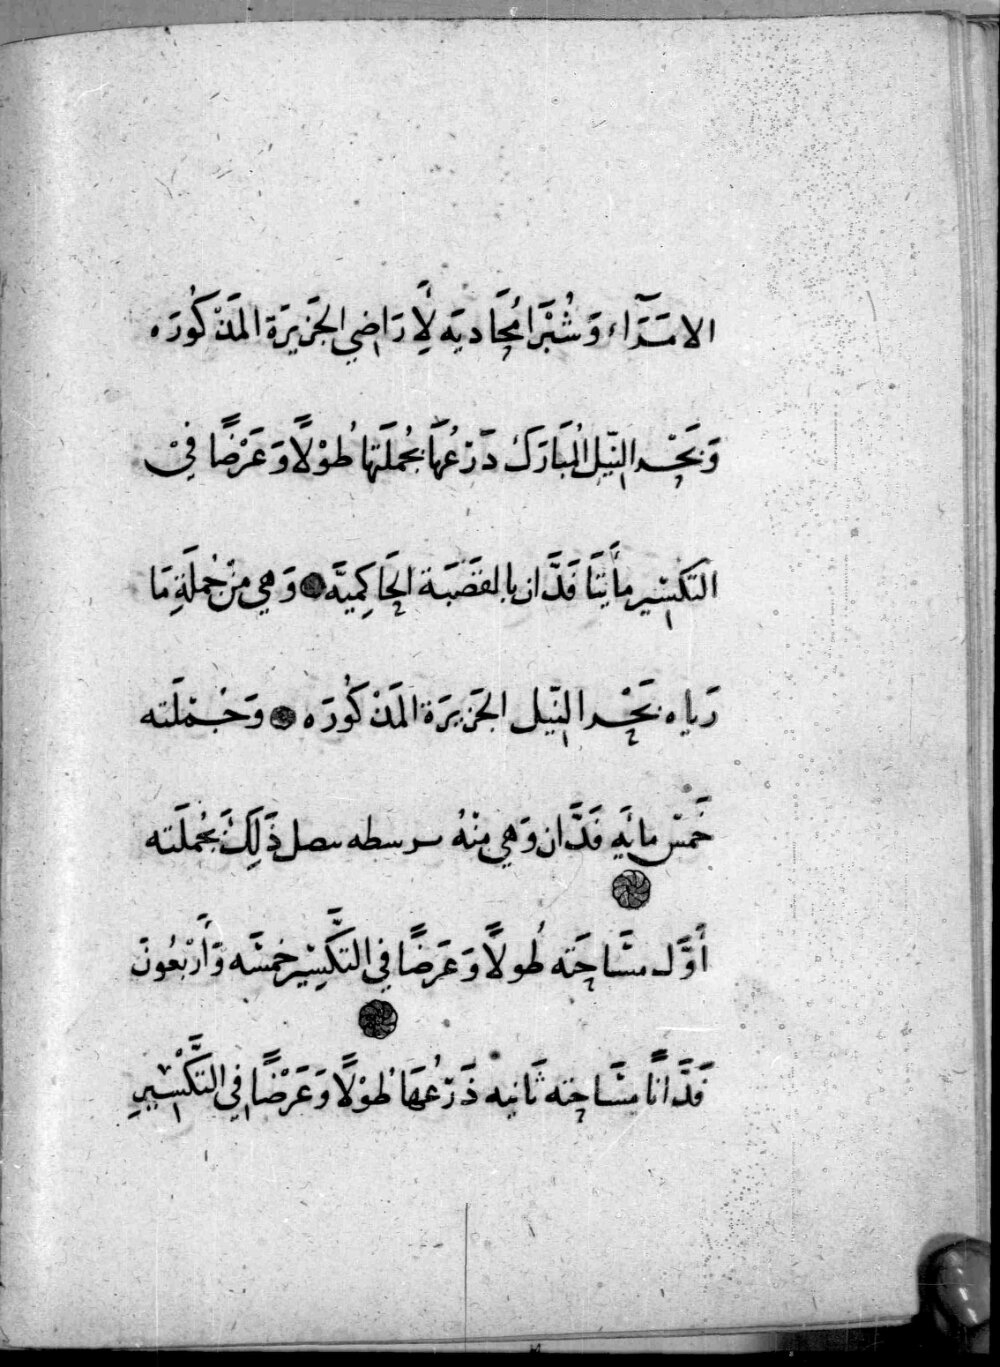 الامَرَآء وَشُبْرَا مُحَاديَه لِأَرَاضِي الجَزيرَة المَذْكُورَه
وَبَحْر النِّيل المُبَارَك دَرْعُهَا بجُملَتهَا طُوْلًا وَعَرْضًا فِيْ
التكسِير مأَيتَا فَدَّان بالقصَبَة الحَاكِميَّه وَهيَ مِنْ جُملَةِ مَا
رَيَاه بَحْر النِّيل الجَزيرَة المَذْكُورَه وَجُمْلَته
خَمسْ مائَهِ فَدَّان وَهيَ مِنْهُ ذَلِكَ بجُملَته
أَوَّل مسَاحَته طُولًا وَعَرضًا في التَّكسِير خمسَه وَأَرْبعُونَ
فَدَّانًا مسَاحته ثَانيه ذَرْعُهَا طُوْلًا وَعَرْضًا فِي التَّكْسِيرِ